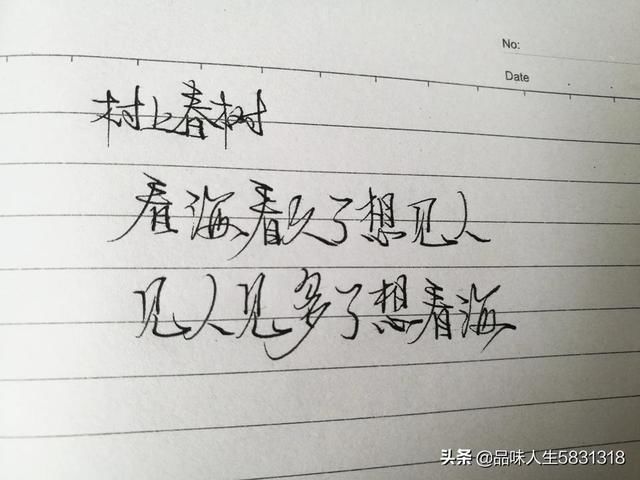 No:
Date
村上春树
看海看久了想见人
见人见多了想看海
头条 @品味人生5831318